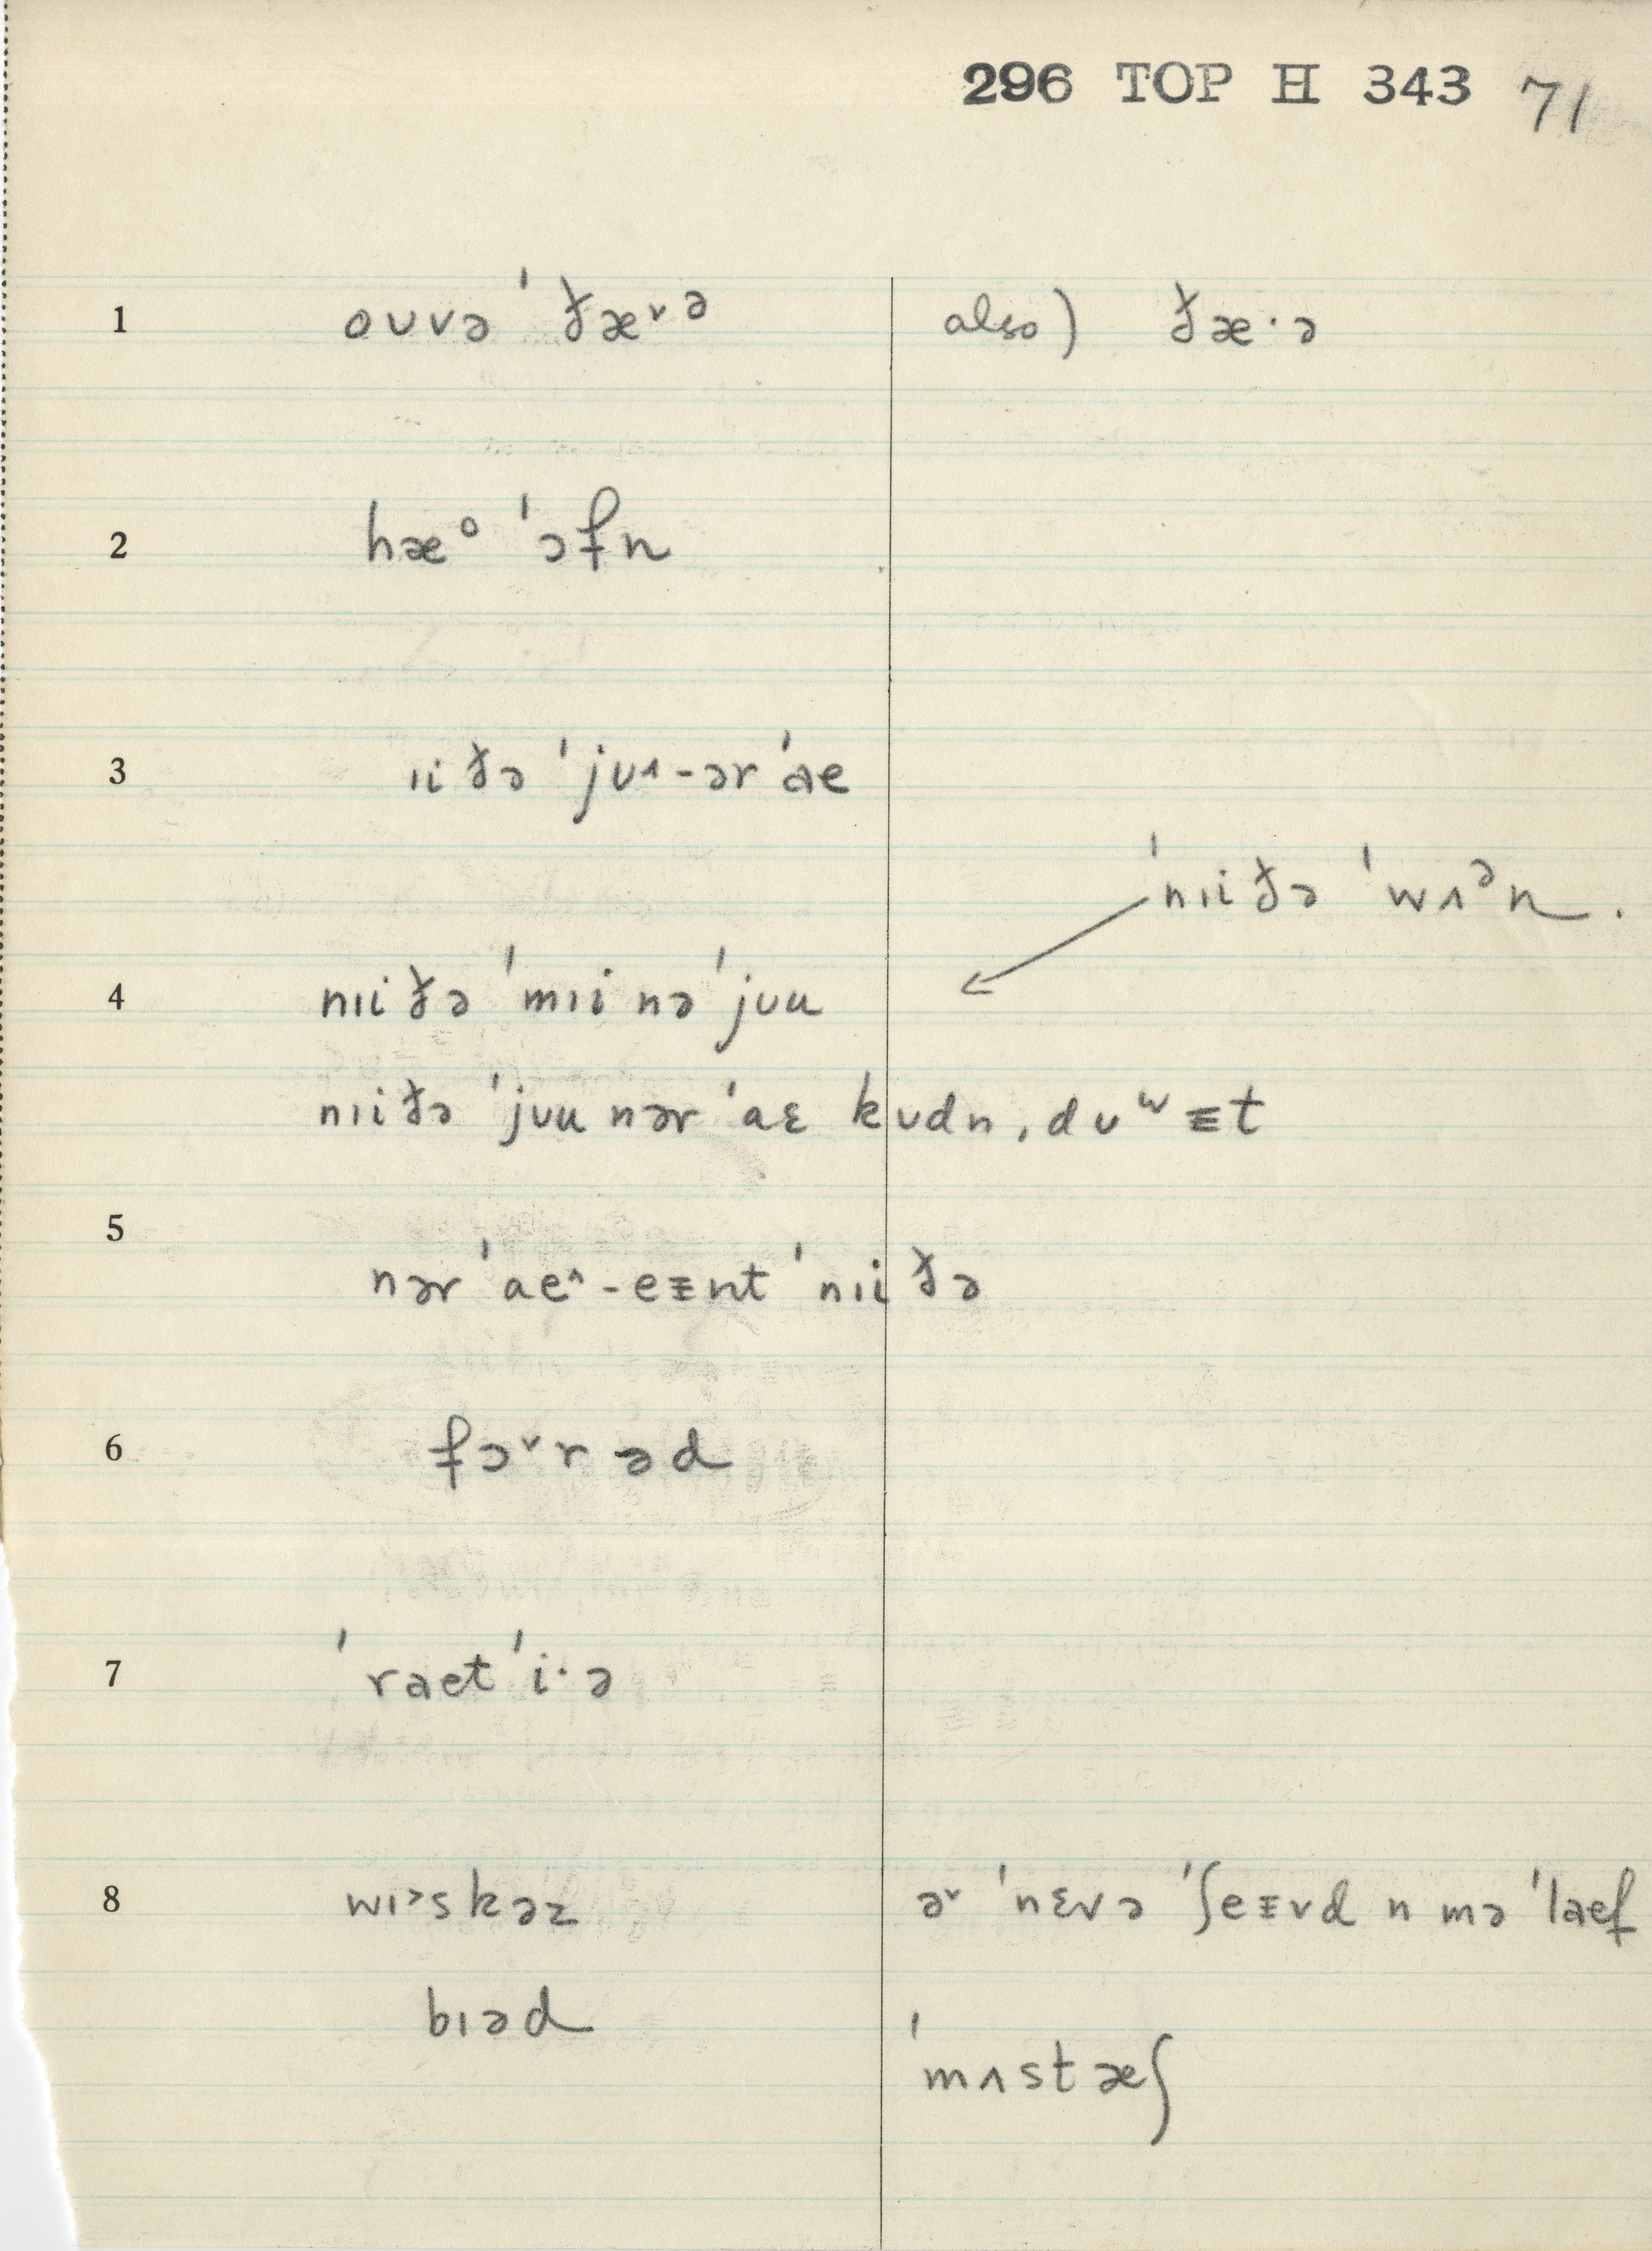 296 TOP H 343 71
1 oʊvə ˈðæ˅ə also) ðæ·ə
2 hæᵒ ˈɔfn
3 ɪiðə ˈjʊ˄-ər ˈae
ˈnɪiðə ˈwʌᵊn.
4 nɪiðə ˈmɪi nə ˈjʊu
nɪiðə ˈjʊu nər ˈaɛ kʊdn, dʊʷᵻt
5 nər ˈae˄-eᵻnt ˈnɪiðə
6 fɔ˅rəd
7 ˈraet ˈi·ə
8 wɪ˃skəz ə˅ ˈnɛvə ˈʃeᵻvd n mə ˈlaef
bɪəd
ˈmʌstæʃ